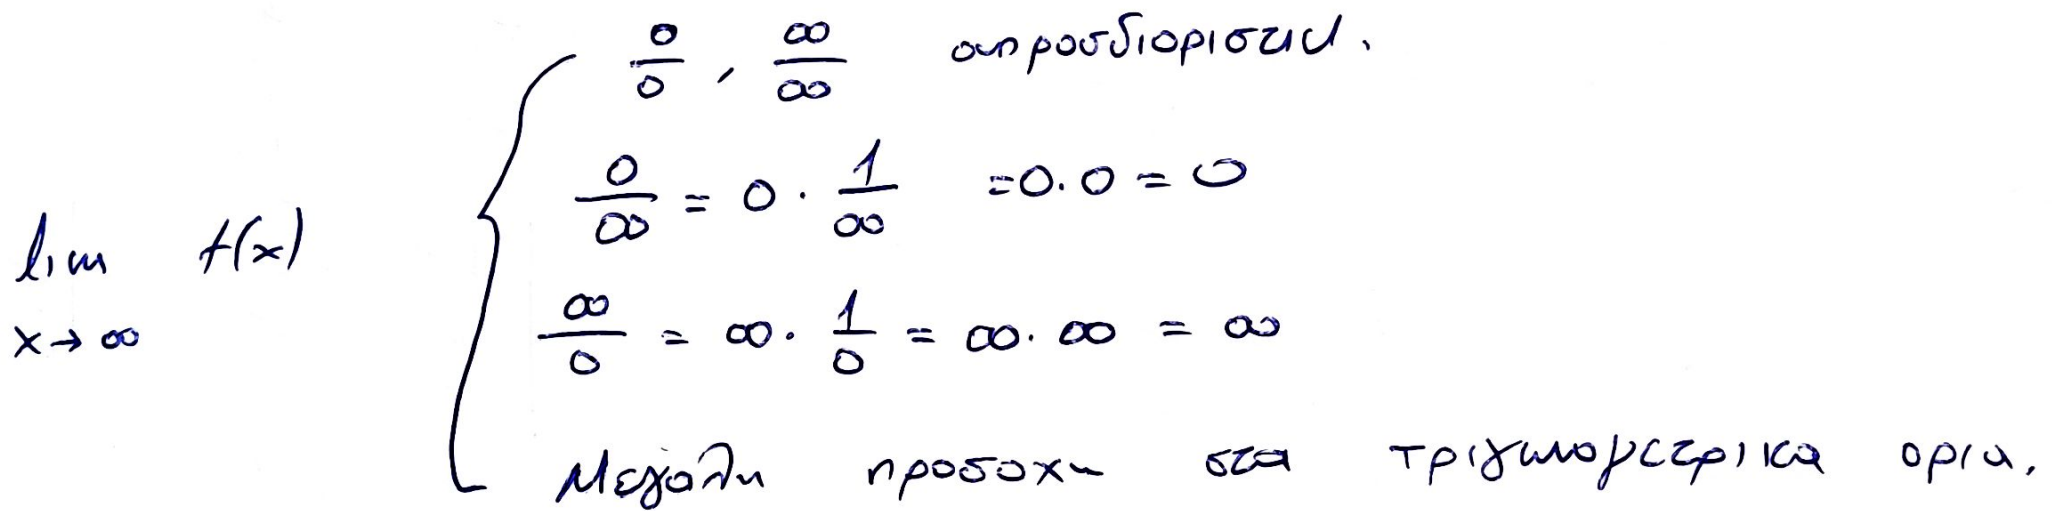 0/0 , ∞/∞ απροσδιοριστια.
0/∞ = 0 · 1/∞ = 0 · 0 = 0
lim x→∞ f(x)
∞/0 = ∞ · 1/0 = ∞ · ∞ = ∞
Μεγάλη προσοχη στα τριγωνομετρικα ορια.